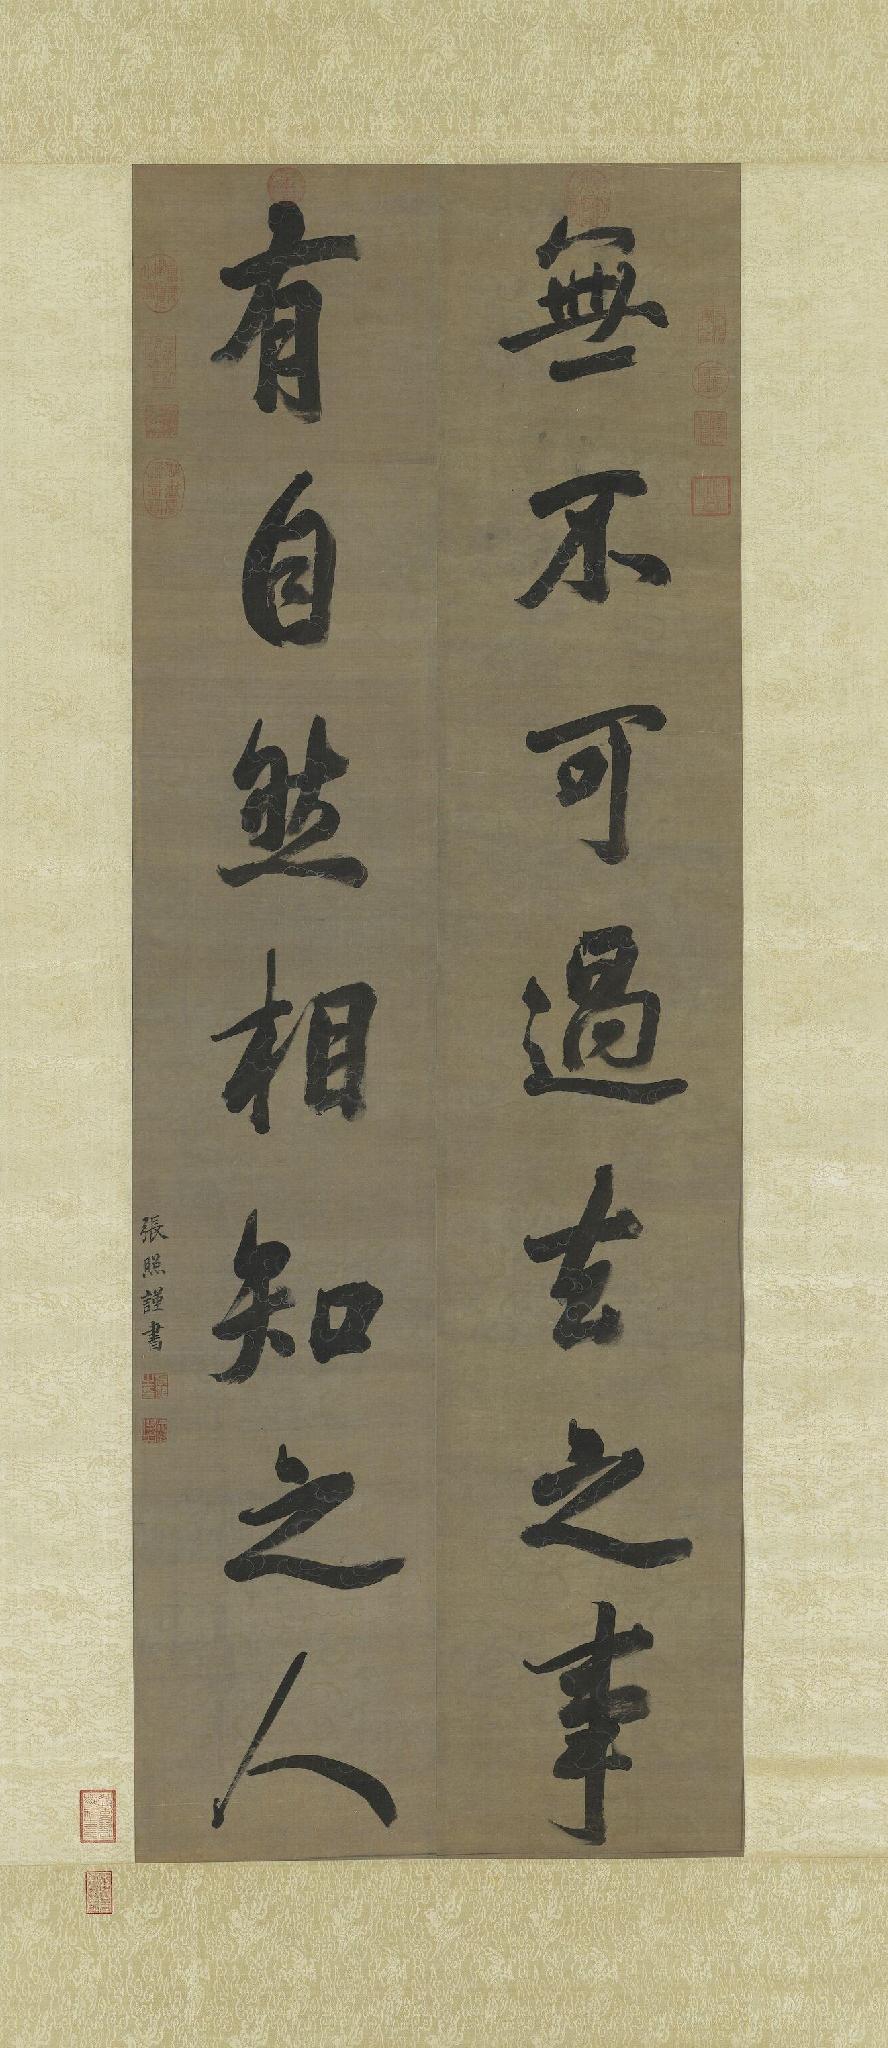 無不可過去之事
有自然相知之人
張照謹書